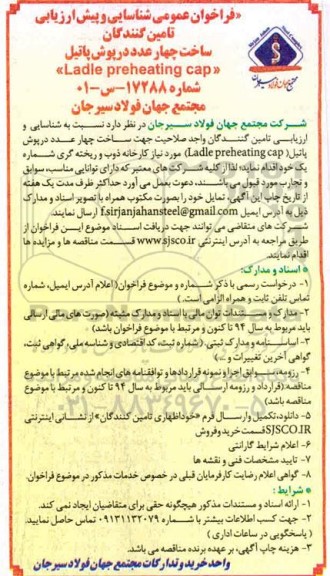 «فراخوان عمومی شناسایی و پیش ارزیابی
تامین کنندگان
ساخت چهار عدد درپوش پاتیل
«Ladle preheating cap»
شماره ۱۷۲۸۸-س-۰۱
مجتمع جهان فولاد سیرجان
شرکت مجتمع جهان فولاد سیرجان در نظر دارد نسبت به شناسایی و
ارزیابی تامین کنندگان واجد صلاحیت جهت ساخت چهار عدد درپوش
پاتیل( Ladle preheating cap) مورد نیاز کارخانه ذوب و ریخته گری شماره
یک خود اقدام نماید؛ لذا از کلیه شرکت های معتبر که دارای توانایی مناسب، سوابق
و تجارب مورد قبول می باشند، دعوت بعمل می آورد حداکثر ظرف مدت یک هفته
از تاریخ چاپ این آگهی، تمایل خود را بصورت مکتوب همراه با تصویر اسناد و مدارک
ذیل به آدرس ایمیل f.sirjanjahansteel@gmail.com ارسال نمایند.
شرکت های متقاضی می توانند جهت دریافت اسناد موضوع این فراخوان از
طریق مراجعه به آدرس اینترنتی www.sjsco.ir قسمت مناقصه ها و مزایده ها
اقدام نمایند.
* اسناد و مدارک:
۱- درخواست رسمی با ذکر شماره و موضوع فراخوان( اعلام آدرس ایمیل، شماره
تماس تلفن ثابت و همراه الزامی است.)
۲- مدارک و مستندات توان مالی با اسناد و مدارک مثبته (صورت های مالی ارسالی
باید مربوط به سال ۹۴ تا کنون و مرتبط با موضوع فراخوان باشد)
۳- اساسنامه و مدارک ثبتی (شماره ثبت، کد اقتصادی و شناسه ملی، گواهی ثبت،
گواهی آخرین تغییرات و ...)
۴- رزومه، سوابق اجرا و نمونه قراردادها و توافقنامه های انجام شده مرتبط با موضوع
مناقصه (قرارداد و رزومه ارسالی باید مربوط به سال ۹۴ تا کنون و مرتبط با موضوع
مناقصه باشد)
۵- دانلود، تکمیل وارسال فرم «خوداظهاری تامین کنندگان» از نشانی اینترنتی
SJSCO.IR قسمت خرید و فروش
۶- اعلام شرایط گارانتی
۷- تایید مشخصات فنی و نقشه ها
۸- گواهی اعلام رضایت کارفرمایان قبلی در خصوص خدمات مذکور در موضوع فراخوان
* شرایط :
۱- ارائه اسناد و مستندات مذکور هیچگونه حقی برای متقاضیان ایجاد نمی کند.
۲- جهت کسب اطلاعات بیشتر با شماره ۰۹۱۳۱۱۳۲۰۷۹ تماس حاصل نمایید.
( پاسخگویی در ساعات اداری )
۳- هزینه چاپ آگهی، بر عهده برنده مناقصه می باشد.
واحد خرید و تدارکات مجتمع جهان فولاد سیرجان